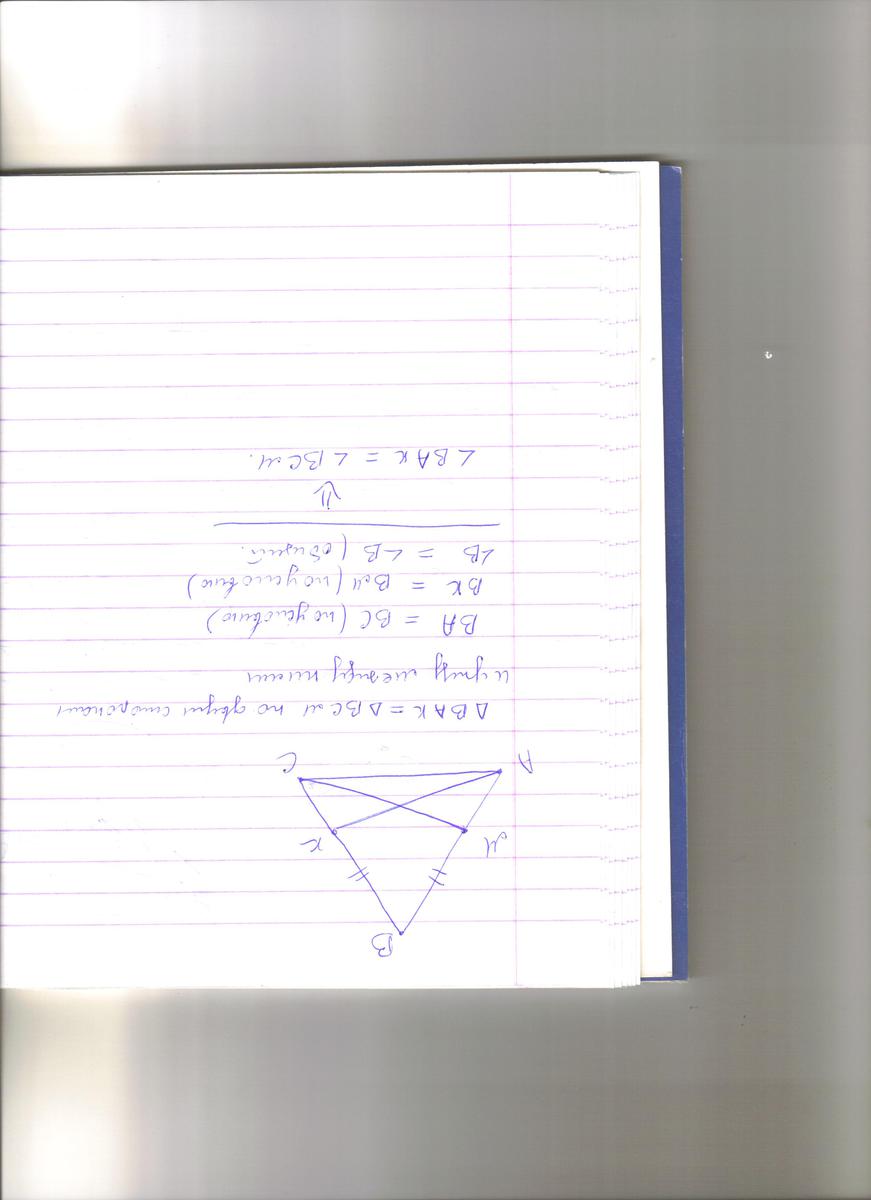 B
М К
А С
Δ BAK = Δ BCM по двум сторонам
и углу между ними
BA = BC (по условию)
BK = BM (по условию)
∠B = ∠B (общий.
⇓
∠BAK = ∠BCM.